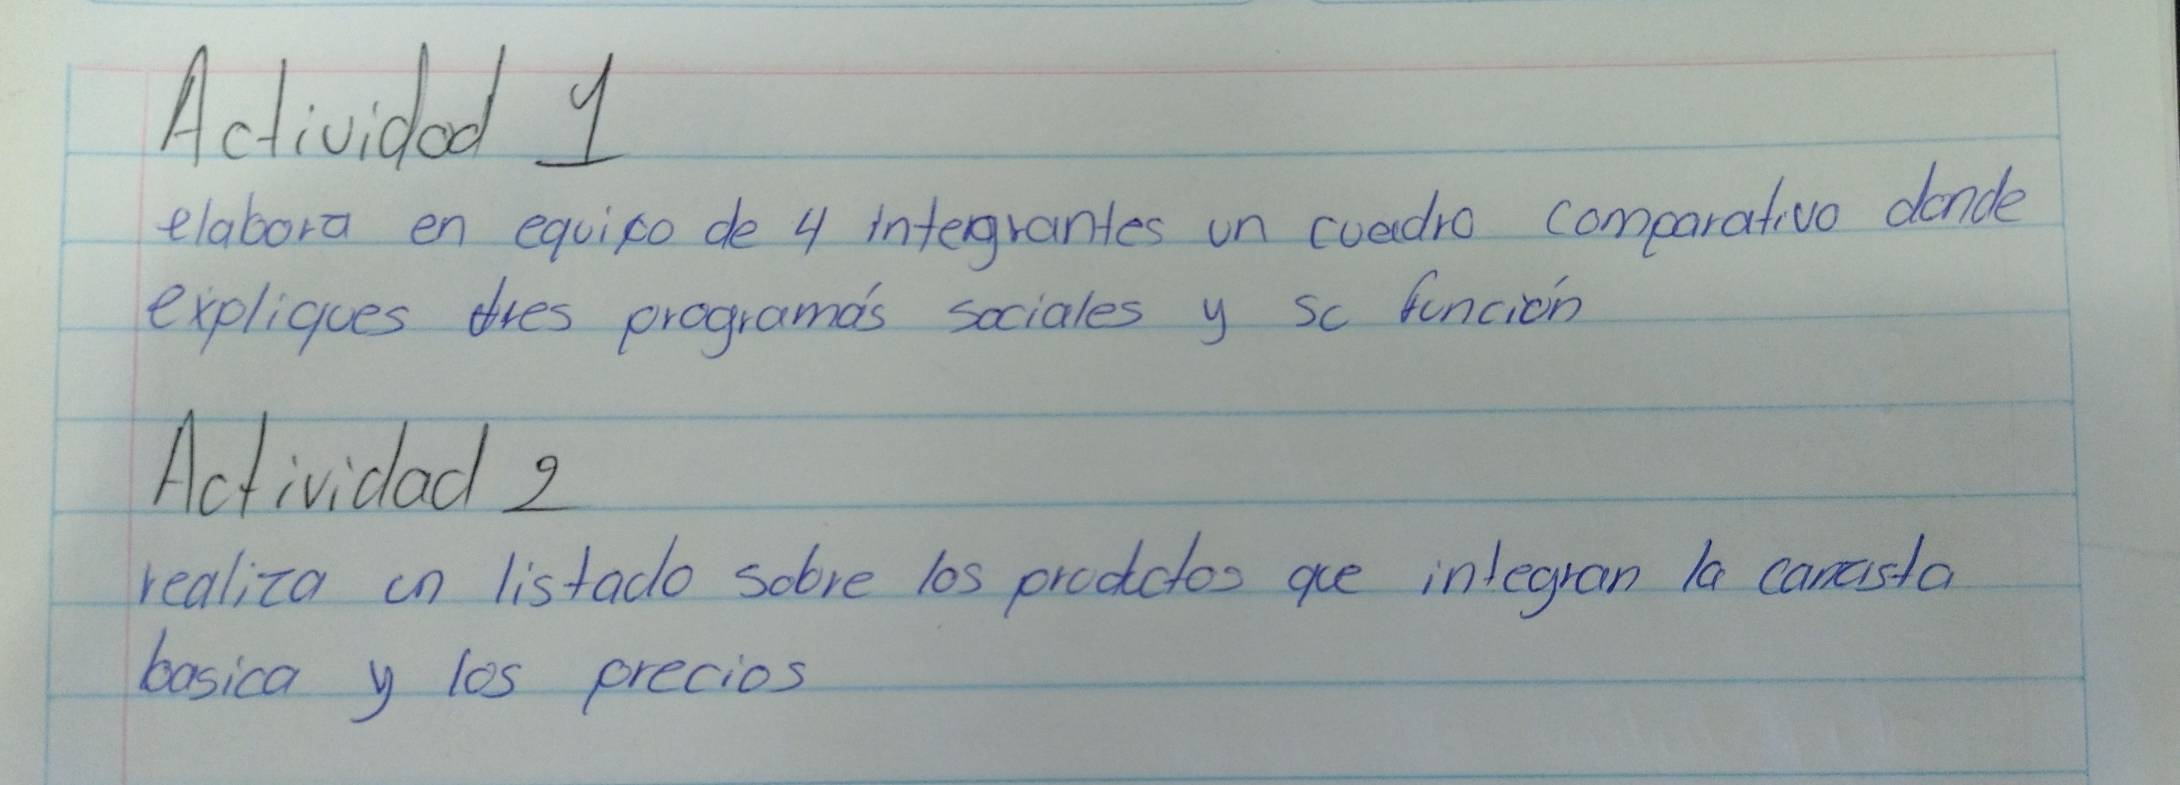 Actividad 1
elabora en equipo de 4 intengrantes un cuadro comparativo donde
expliques tres programás sociales y su función
Actividad 2
realiza un listado sobre los productos que integran la canasta
basica y los precios